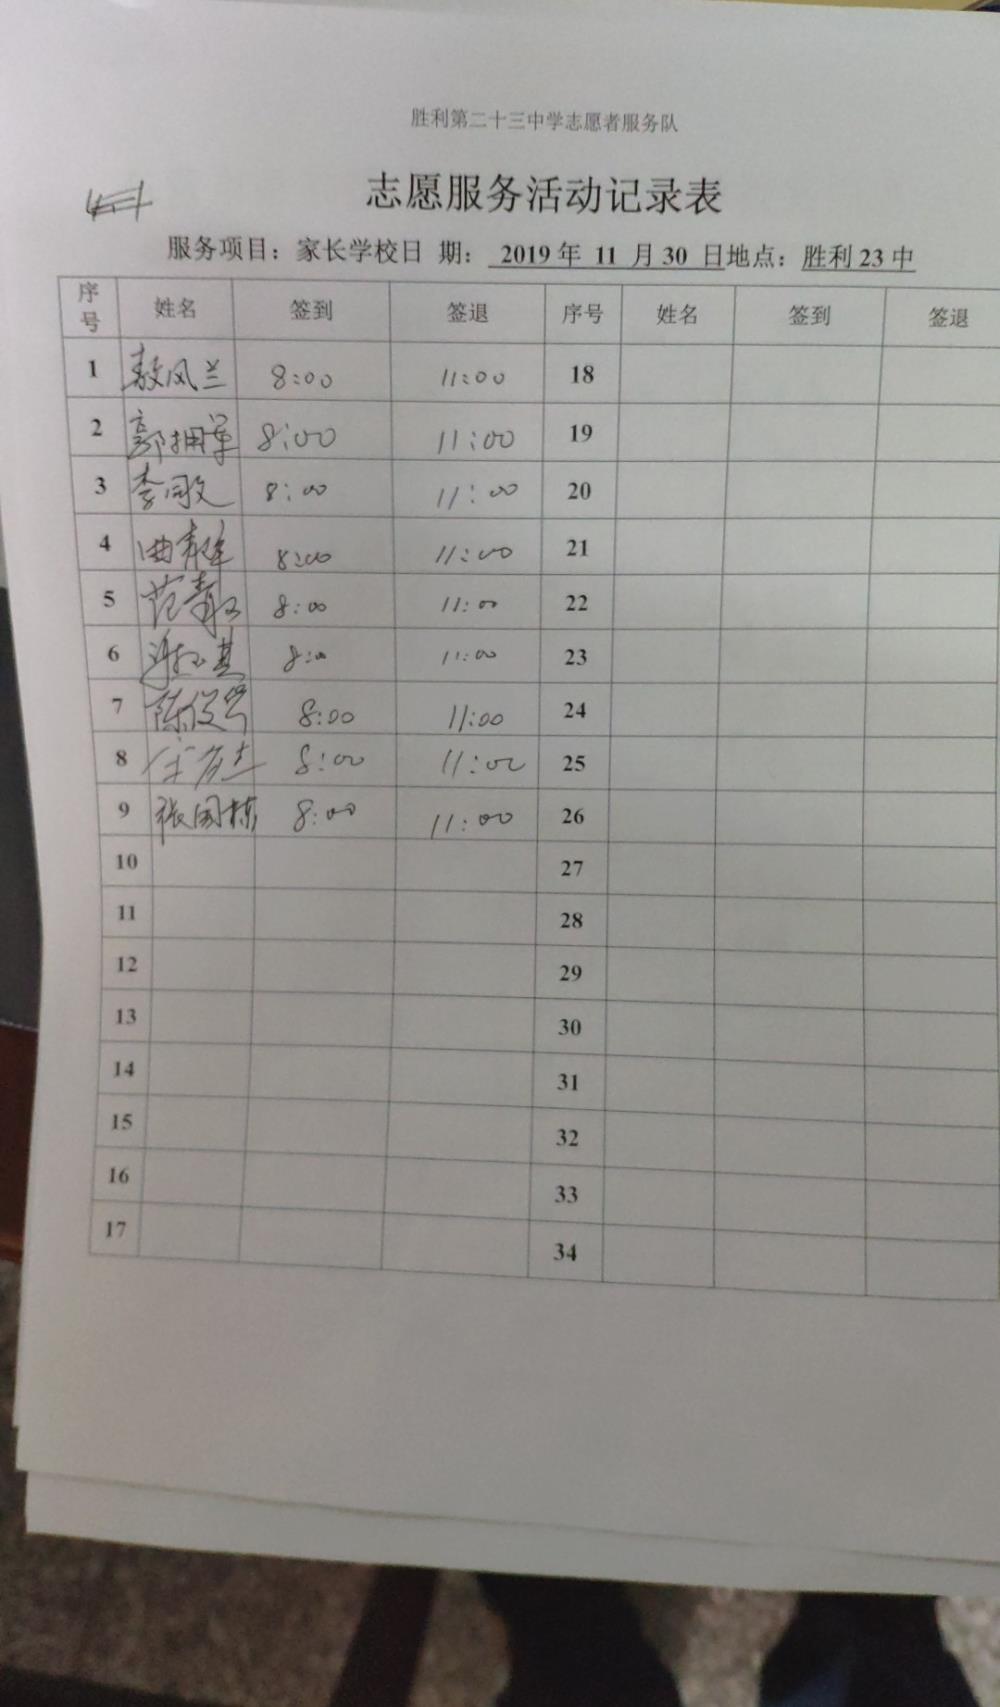 胜利第二十三中学志愿者服务队
志愿服务活动记录表
服务项目：家长学校日 期： 2019 年 11 月 30 日地点：胜利 23 中
序号 姓名 签到 签退 序号 姓名 签到 签退
1 凤兰 8:00 11:00 18
2 郭拥军 8:00 11:00 19
3 李 8:00 11:00 20
4 曲 8:00 11:00 21
5 范 8:00 11:00 22
6 8:00 11:00 23
7 陈俊 8:00 11:00 24
8 8:00 11:00 25
9 张国栋 8:00 11:00 26
10 27
11 28
12 29
13 30
14 31
15 32
16 33
17 34